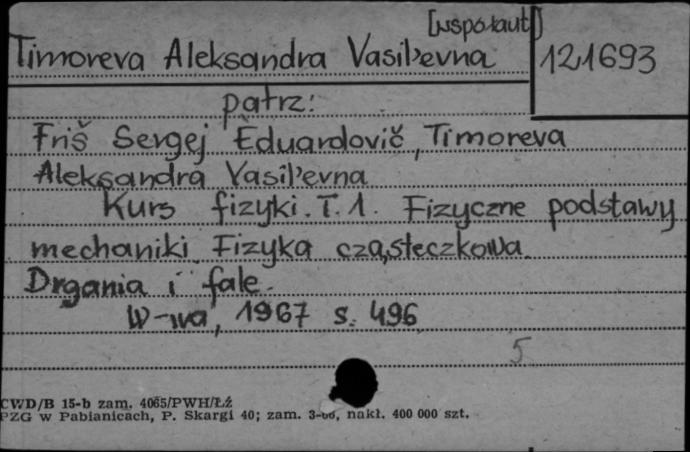 [współaut]
Timoreva Aleksandra Vasil'evna 121693
patrz:
Friš Sergej Eduardovič, Timoreva
Aleksandra Vasil'evna
Kurs fizyki. T. 1. Fizyczne podstawy
mechaniki. Fizyka cząsteczkowa.
Drgania i fale.
W-wa, 1967 s. 496
5
CWD/B 15-b zam. 4065/PWH/Łź
PZG w Pabianicach, P. Skargi 40; zam. nakł. 400 000 szt.